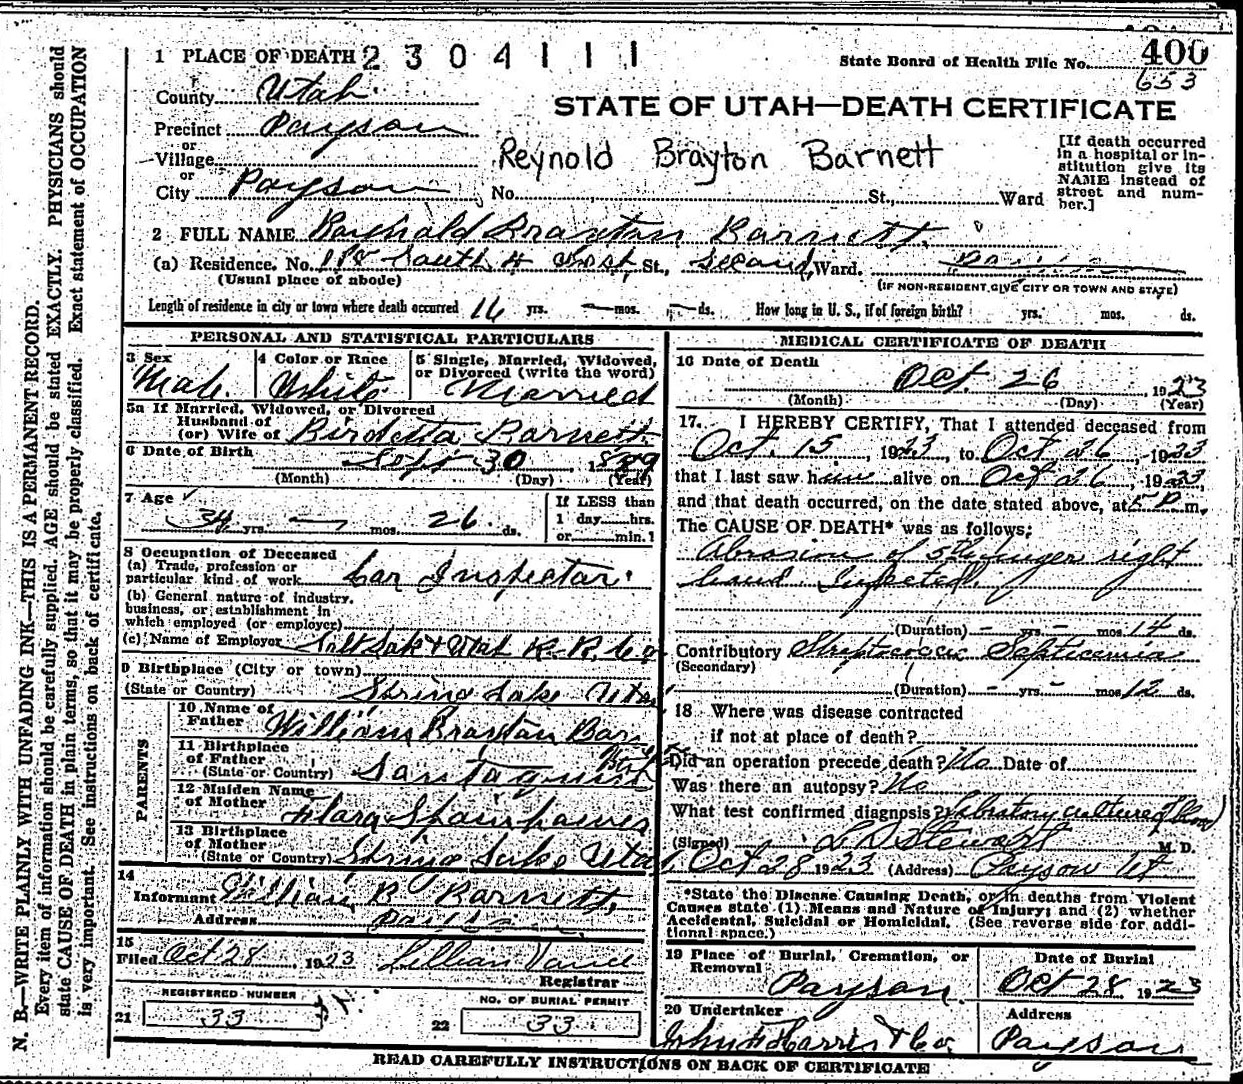 400
1 PLACE OF DEATH 2 3 0 4 1 1 1
State Board of Health File No.
653
County Utah
STATE OF UTAH—DEATH CERTIFICATE
Precinct Payson
or
Village
or
City Payson No. St., Ward
Reynold Brayton Barnett
[If death occurred
in a hospital or in-
stitution give its
NAME instead of
street and num-
ber.]
2 FULL NAME Raynold Braxton Barnett
(a) Residence. No. South 4 West, St., Second, Ward.
(Usual place of abode)
(IF NON-RESIDENT, GIVE CITY OR TOWN AND STATE)
Length of residence in city or town where death occurred 16 yrs. — mos. — ds. How long in U. S., if of foreign birth? yrs. mos. ds.
PERSONAL AND STATISTICAL PARTICULARS
3 Sex
Male
4 Color or Race
White
5 Single, Married, Widowed,
or Divorced (write the word)
Married
5a If Married, Widowed, or Divorced
Husband of
(or) Wife of Birdetta Barnett
6 Date of Birth Sept 30, 1889
(Month) (Day) (Year)
7 Age
34 yrs. — mos. 26 ds.
If LESS than
1 day......hrs.
or......min.
8 Occupation of Deceased
(a) Trade, profession or
particular kind of work Car Inspector
(b) General nature of industry,
business, or establishment in
which employed (or employer)
(c) Name of Employer Salt Lake & Utah R. R. Co.
9 Birthplace (City or town)
(State or Country) Spring Lake Utah
PARENTS
10 Name of
Father William Braxton Bar
11 Birthplace
of Father
(State or Country) Santaquin
12 Maiden Name
of Mother Flara
13 Birthplace
of Mother
(State or Country) Spring Lake Utah
14
Informant William B Barnett
Address
15
Filed Oct 28, 1923 Lillian Vance
Registrar
REGISTERED NUMBER
21 33
NO. OF BURIAL PERMIT
22 33
MEDICAL CERTIFICATE OF DEATH
16 Date of Death Oct. 26, 1923
(Month) (Day) (Year)
17. I HEREBY CERTIFY, That I attended deceased from
Oct. 15, 1923, to Oct 26, 1923
that I last saw him alive on Oct 26, 1923,
and that death occurred, on the date stated above, at 5 P. m.
The CAUSE OF DEATH* was as follows:
Abrasion of 5th finger right
hand Infected.
(Duration) - yrs. - mos. 14 ds.
Contributory Streptococcic Septicemia
(Secondary)
(Duration) - yrs. - mos. 12 ds.
18 Where was disease contracted
if not at place of death?
Did an operation precede death? No Date of
Was there an autopsy? No
What test confirmed diagnosis? Laboratory culture of blood
(Signed) L D Stewart M. D.
Oct 28 1923 (Address) Payson Ut
*State the Disease Causing Death, or in deaths from Violent
Causes state (1) Means and Nature of Injury; and (2) whether
Accidental, Suicidal or Homicidal. (See reverse side for addi-
tional space.)
19 Place of Burial, Cremation, or
Removal
Payson
Date of Burial
Oct 28, 1923
20 Undertaker
John F Harris & Co.
Address
Payson
READ CAREFULLY INSTRUCTIONS ON BACK OF CERTIFICATE
N. B.—WRITE PLAINLY WITH UNFADING INK—THIS IS A PERMANENT RECORD.
Every item of information should be carefully supplied. AGE should be stated EXACTLY. PHYSICIANS should
state CAUSE OF DEATH in plain terms, so that it may be properly classified. Exact statement of OCCUPATION
is very important. See instructions on back of certificate.